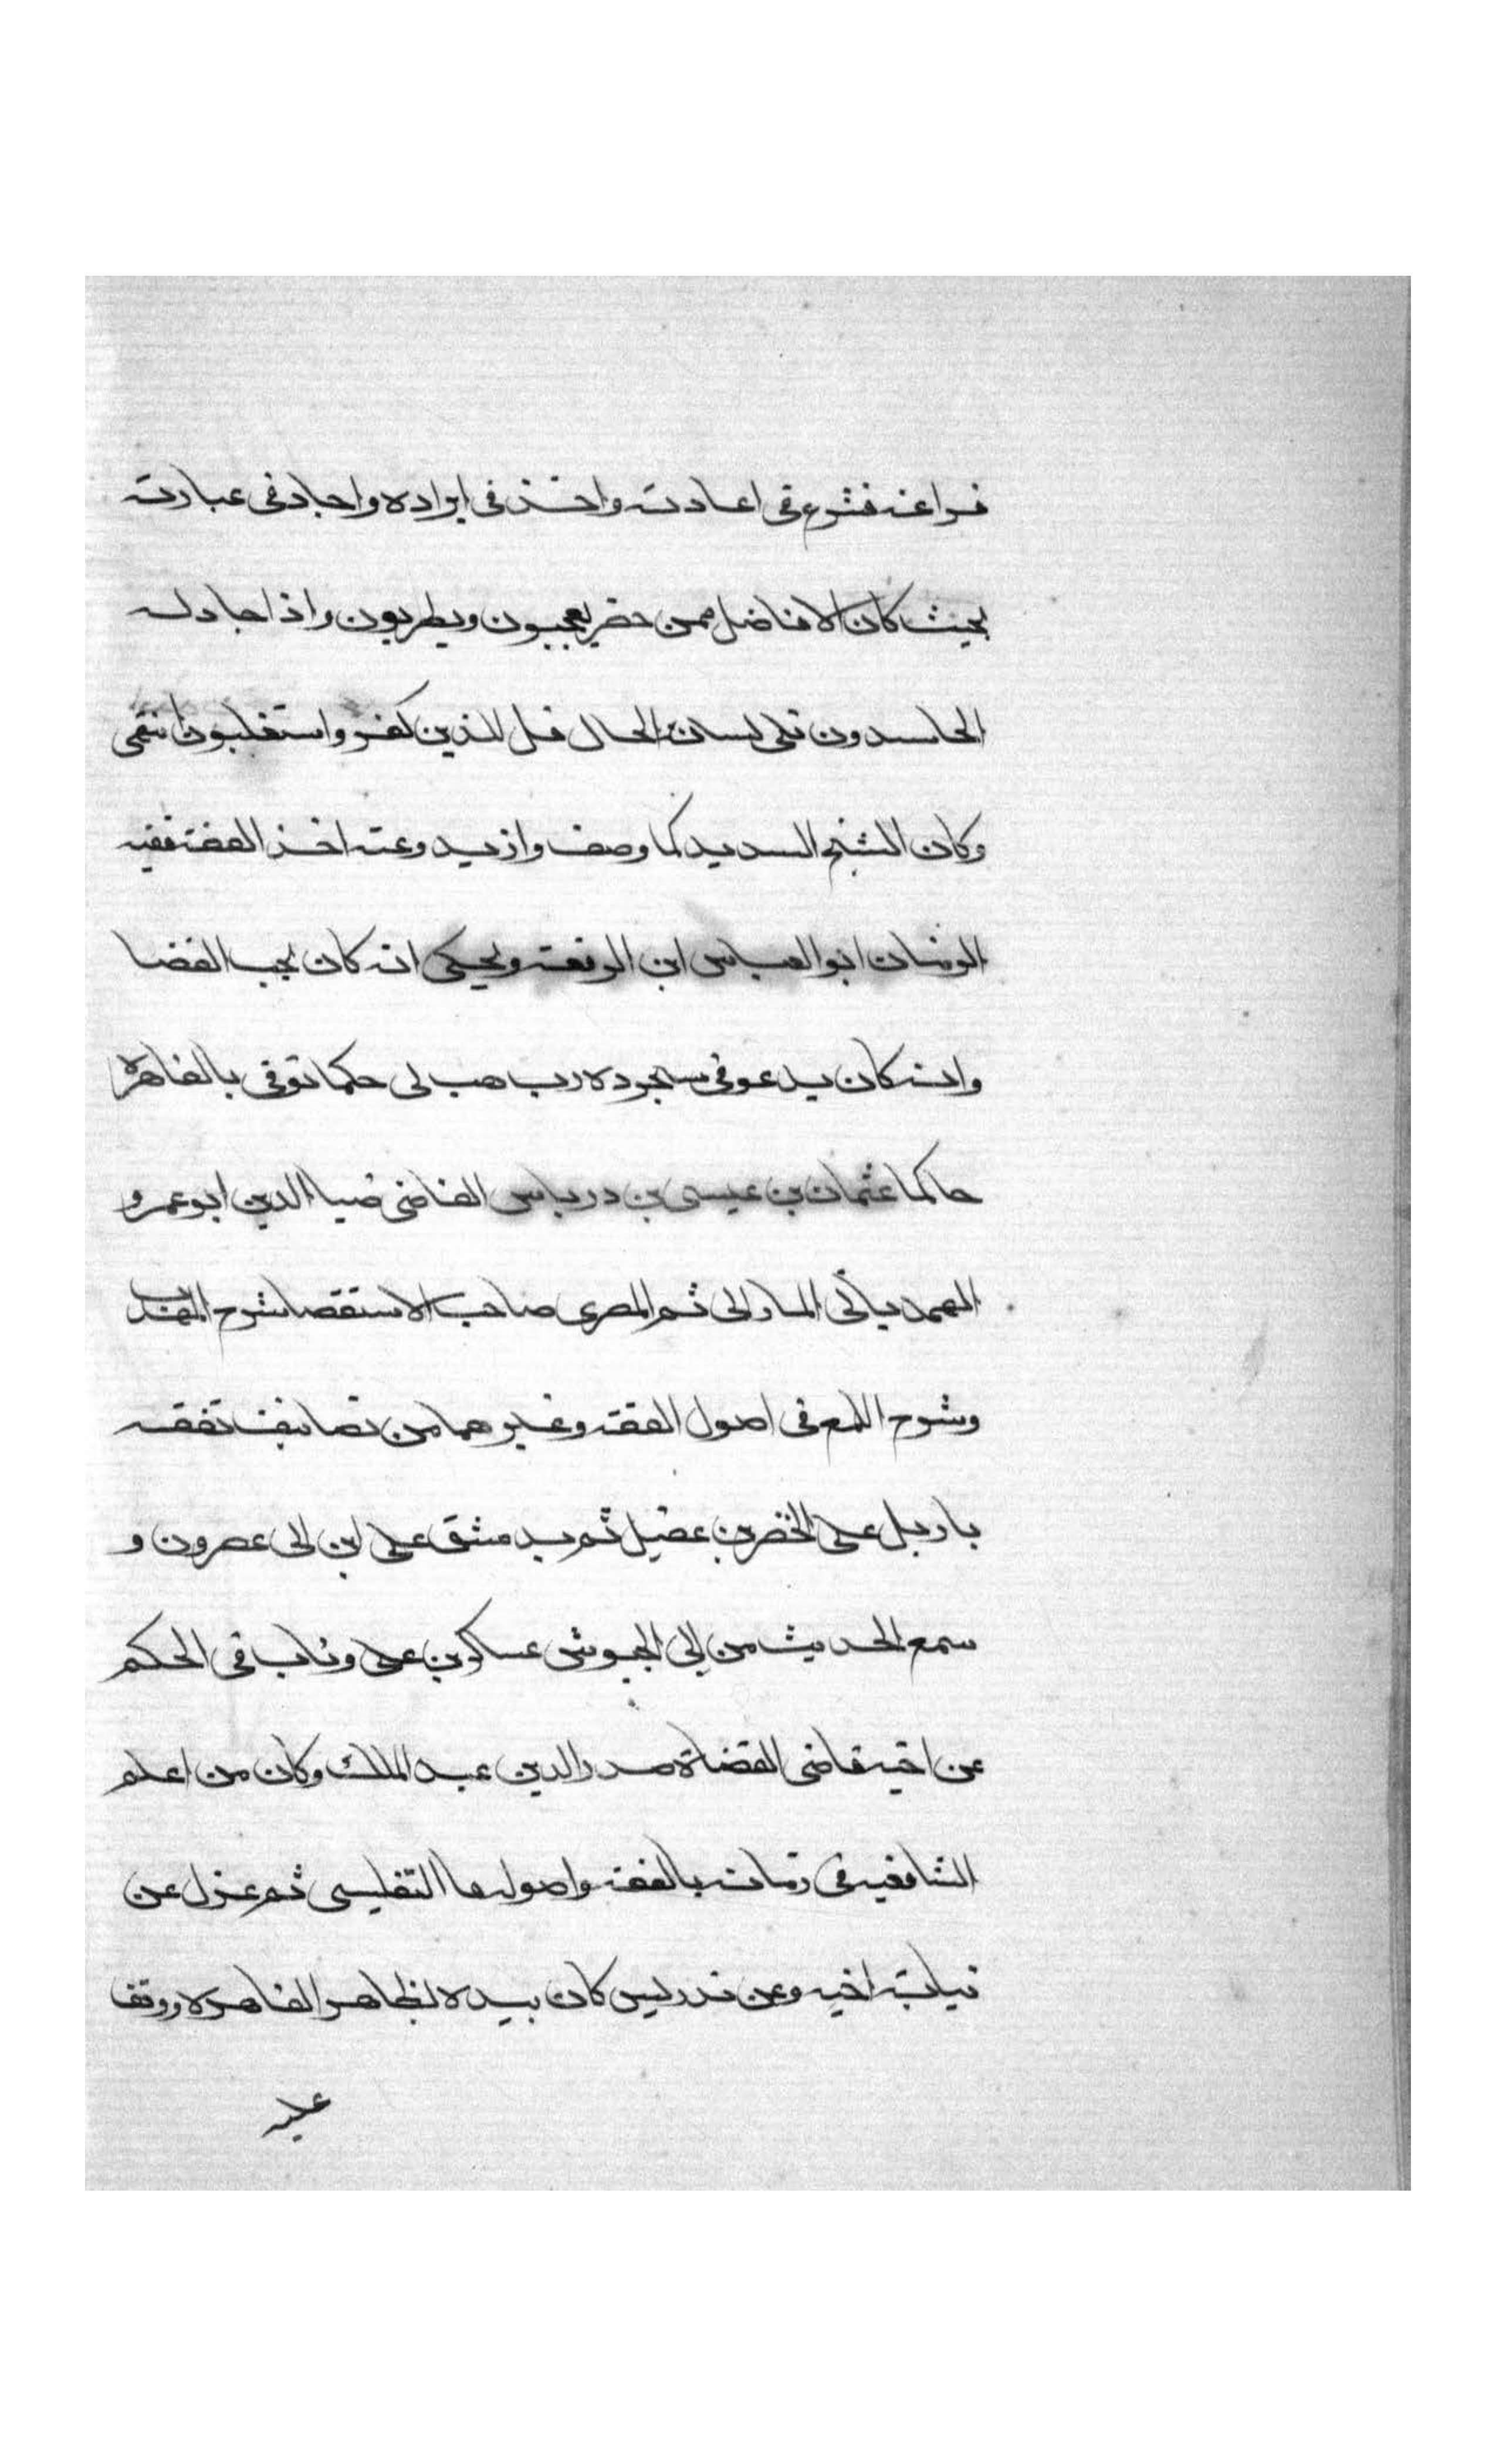 فراغه فشرع فى اعادته واخذ فى ايراده واجاد فى عبارته
بحيث كان الافاضل ممن حضر يعجبون ويطربون واذا جادله
الحاسدون تلى لسان الحال قل للذين كفروا ستغلبون انتهى
وكان الشيخ السديد كما وصف وازيد وعنه اخذ الفقه فقيه
الزمان ابو العباس ابن الرفعه ويحكى انه كان يحب القضا
وانه كان يدعو فى سجوده رب هب لى حكما توفى بالقاهرة
حاكما عثمان بن عيسى بن درباس القاضى ضيا الدين ابو عمرو
الهمدبانى المارانى ثم المصرى صاحب الاستقصا شرح المهذب
وشرح اللمع فى اصول الفقه وغيرهما من تصانيف تفقه
باربل على الخضر بن عقيل ثم بدمشق على ابن ابى عصرون و
سمع الحديث من ابى الجيوش عساكر بن على وناب فى الحكم
عن اخيه قاضى القضاة صدر الدين عبد الملك وكان من اعلم
الشافعيه فى زمانه بالفقه واصوله التفليسى ثم عزل عن
نيابة اخيه وعن تدريس كان بيده بظاهر القاهره ووقف
عليه